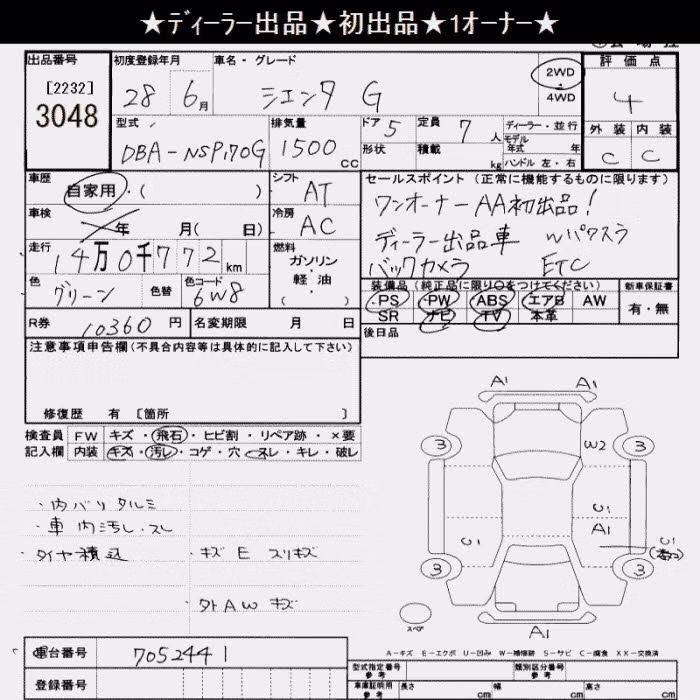 ★ディーラー出品★初出品★1オーナー★
出品番号 初度登録年月 車名・グレード 評価点
[2232]
3048
28 6月 シエンタ G 2WD 4WD 4
外装 内装
C C
型式 排気量 ドア 5 定員 7人 ディーラー・並行
DBA-NSP170G 1500cc 形状 積載 kg モデル年式 年
ハンドル 左・右
車歴 シフト セールスポイント(正常に機能するものに限ります)
自家用・( ) AT ワンオーナー AA初出品!
車検 冷房
年 月( 日) AC ディーラー出品車 Wパワスラ
走行 燃料
14万0千772km ガソリン・軽油 バックカメラ ETC
色 色替 色コード ( )
グリーン 6W8
装備品(純正品に限り〇をつけてください) 新車保証書
PS PW ABS エアB AW 有・無
SR ナビ TV 本革
R券 10360円 名変期限 月 日 後日品
注意事項申告欄(不具合内容等は具体的に記入して下さい)
修復歴 有 [箇所 ]
検査員 FW キズ・飛石・ヒビ割・リペア跡・×要
記入欄 内装 キズ・汚レ・コゲ・穴・ヌレ・キレ・破レ
・内バリ タルミ
・車内汚レ・スレ
・タイヤ積込 ・キズ E スリキズ
・外AWキズ
A1 A1
3 W2 3
C1
C1 A1 C1
3 3
スペア
A1
A-キズ E-エクボ U-凹み W-補修跡 S-サビ C-腐食 XX-交換済
車台番号 7052441
登録番号
型式指定番号 参考 類別区分番号 参考
車庫証明用 参考 長さ cm 幅 cm 高さ cm